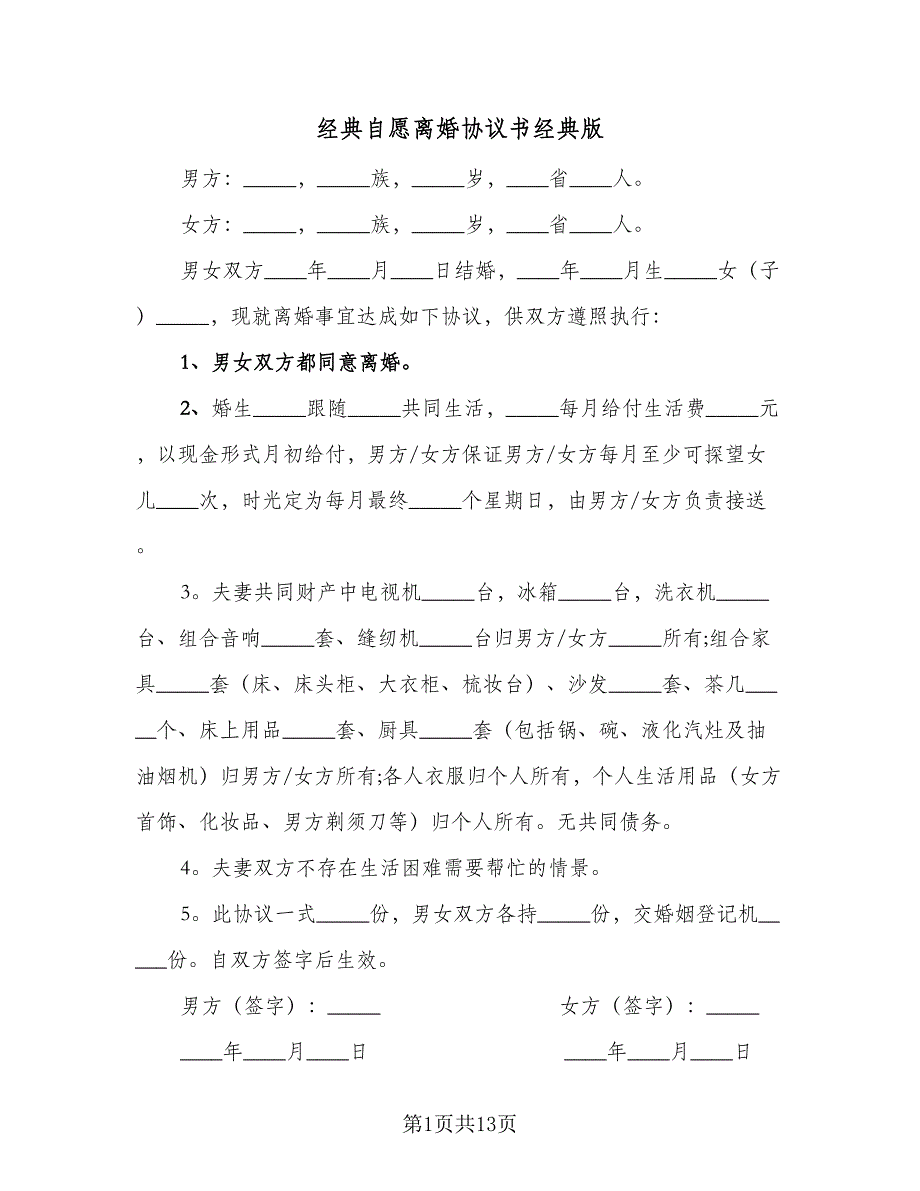 经典自愿离婚协议书经典版
男方：_____，_____族，_____岁，____省____人。
女方：_____，_____族，_____岁，____省____人。
男女双方____年____月____日结婚，____年____月生_____女（子
）_____，现就离婚事宜达成如下协议，供双方遵照执行：
1、男女双方都同意离婚。
2、婚生_____跟随_____共同生活，_____每月给付生活费_____元
，以现金形式月初给付，男方/女方保证男方/女方每月至少可探望女
儿____次，时光定为每月最终_____个星期日，由男方/女方负责接送
。
3。夫妻共同财产中电视机_____台，冰箱_____台，洗衣机_____
台、组合音响_____套、缝纫机_____台归男方/女方_____所有;组合家
具_____套（床、床头柜、大衣柜、梳妆台）、沙发_____套、茶几___
__个、床上用品_____套、厨具_____套（包括锅、碗、液化汽灶及抽
油烟机）归男方/女方所有;各人衣服归个人所有，个人生活用品（女方
首饰、化妆品、男方剃须刀等）归个人所有。无共同债务。
4。夫妻双方不存在生活困难需要帮忙的情景。
5。此协议一式_____份，男女双方各持_____份，交婚姻登记机__
___份。自双方签字后生效。
男方（签字）：_____ 女方（签字）：_____
____年____月____日 ____年____月____日
第1页共13页